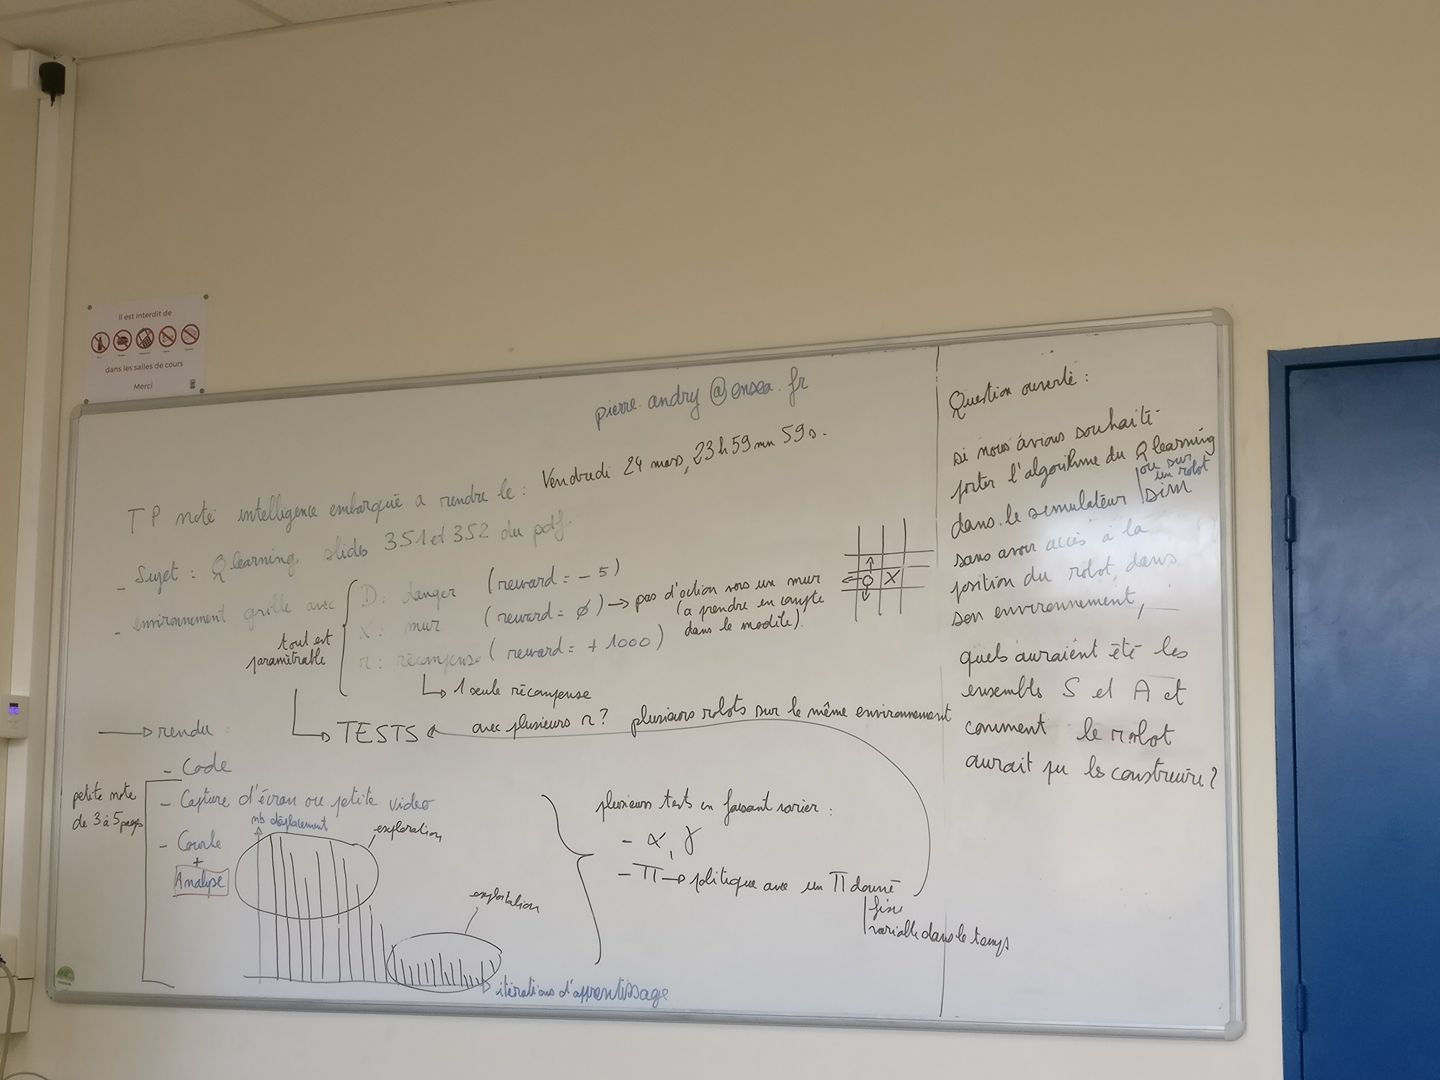 Il est interdit de
dans les salles de cours
Merci
pierre.andry@ensea.fr
TP noté intelligence embarquée a rendre le : Vendredi 24 mars, 23h59mn 59s.
- Sujet : Qlearning slides 351 et 352 du pdf.
- environnement grille avec
tout est
paramétrable
D : danger (reward = -5)
X : mur (reward = ø) → pas d'action vers un mur
(a prendre en compte
dans le modèle).
r : récompense (reward = +1000)
↳ 1 seule récompense
X
↳ TESTS
avec plusieurs r ? plusieurs robots sur le même environnement
→ rendu :
petite note
de 3 à 5 pages
- Code
- Capture d'écran ou petite video
- Courbe
+
Analyse
nb déplacement
exploration
exploitation
itérations d'apprentissage
plusieurs tests en faisant varier :
- α, γ
- Π → politique avec un Π donné
fixe
variable dans le temps
Question ouverte :
si nous avions souhaité
porter l'algorithme du Qlearning
dans le simulateur SIM
ou sur
un robot
sans avoir accès à la
position du robot dans
son environnement,
quels auraient été les
ensembles S et A et
comment le robot
aurait pu les construire ?